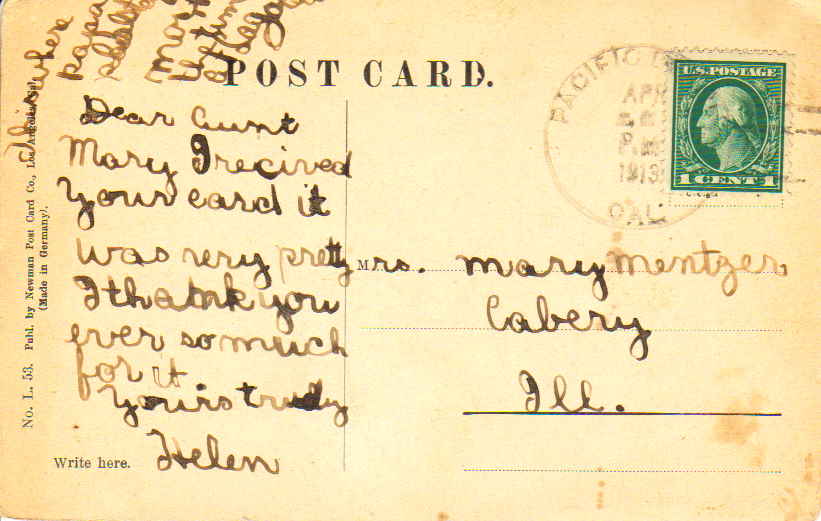 where
papa
most
POST CARD.
Dear Aunt
Mary I recived
Your card it
was very pretty
I thank you
ever so much
for it
Yours truly
Helen
Write here.
No. L. 53. Publ. by Newman Post Card Co., Los Angeles, Cal.
(Made in Germany).
PACIFIC
APR
P.M.
1913
CAL.
U.S. POSTAGE
1 CENT 1
Mrs. Mary Mentzer
Cabery
Ill.